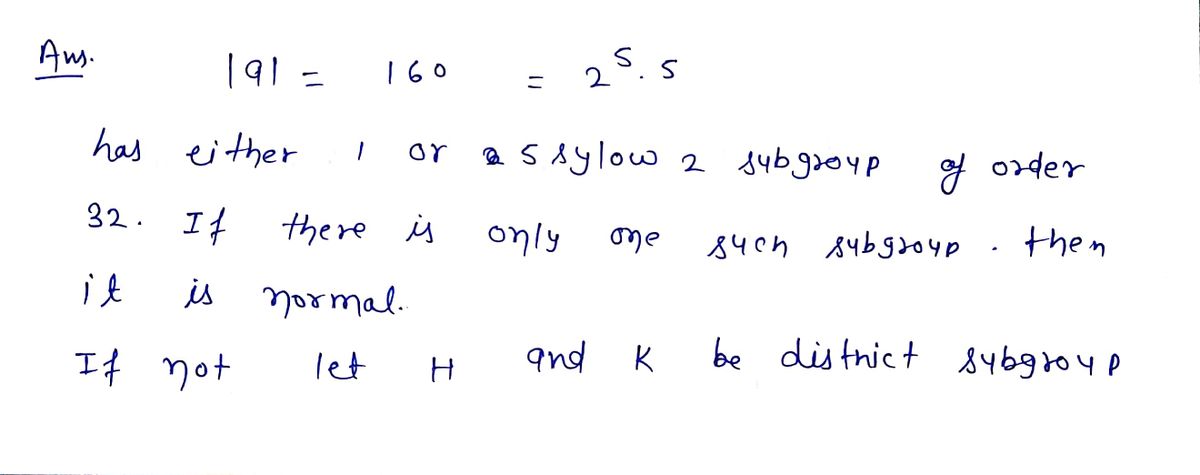 Ans. |G| = 160 = 2^5. 5
has either 1 or 5 sylow 2 subgroup of order
32. If there is only one such subgroup. then
it is normal.
If not let H and K be district subgroup